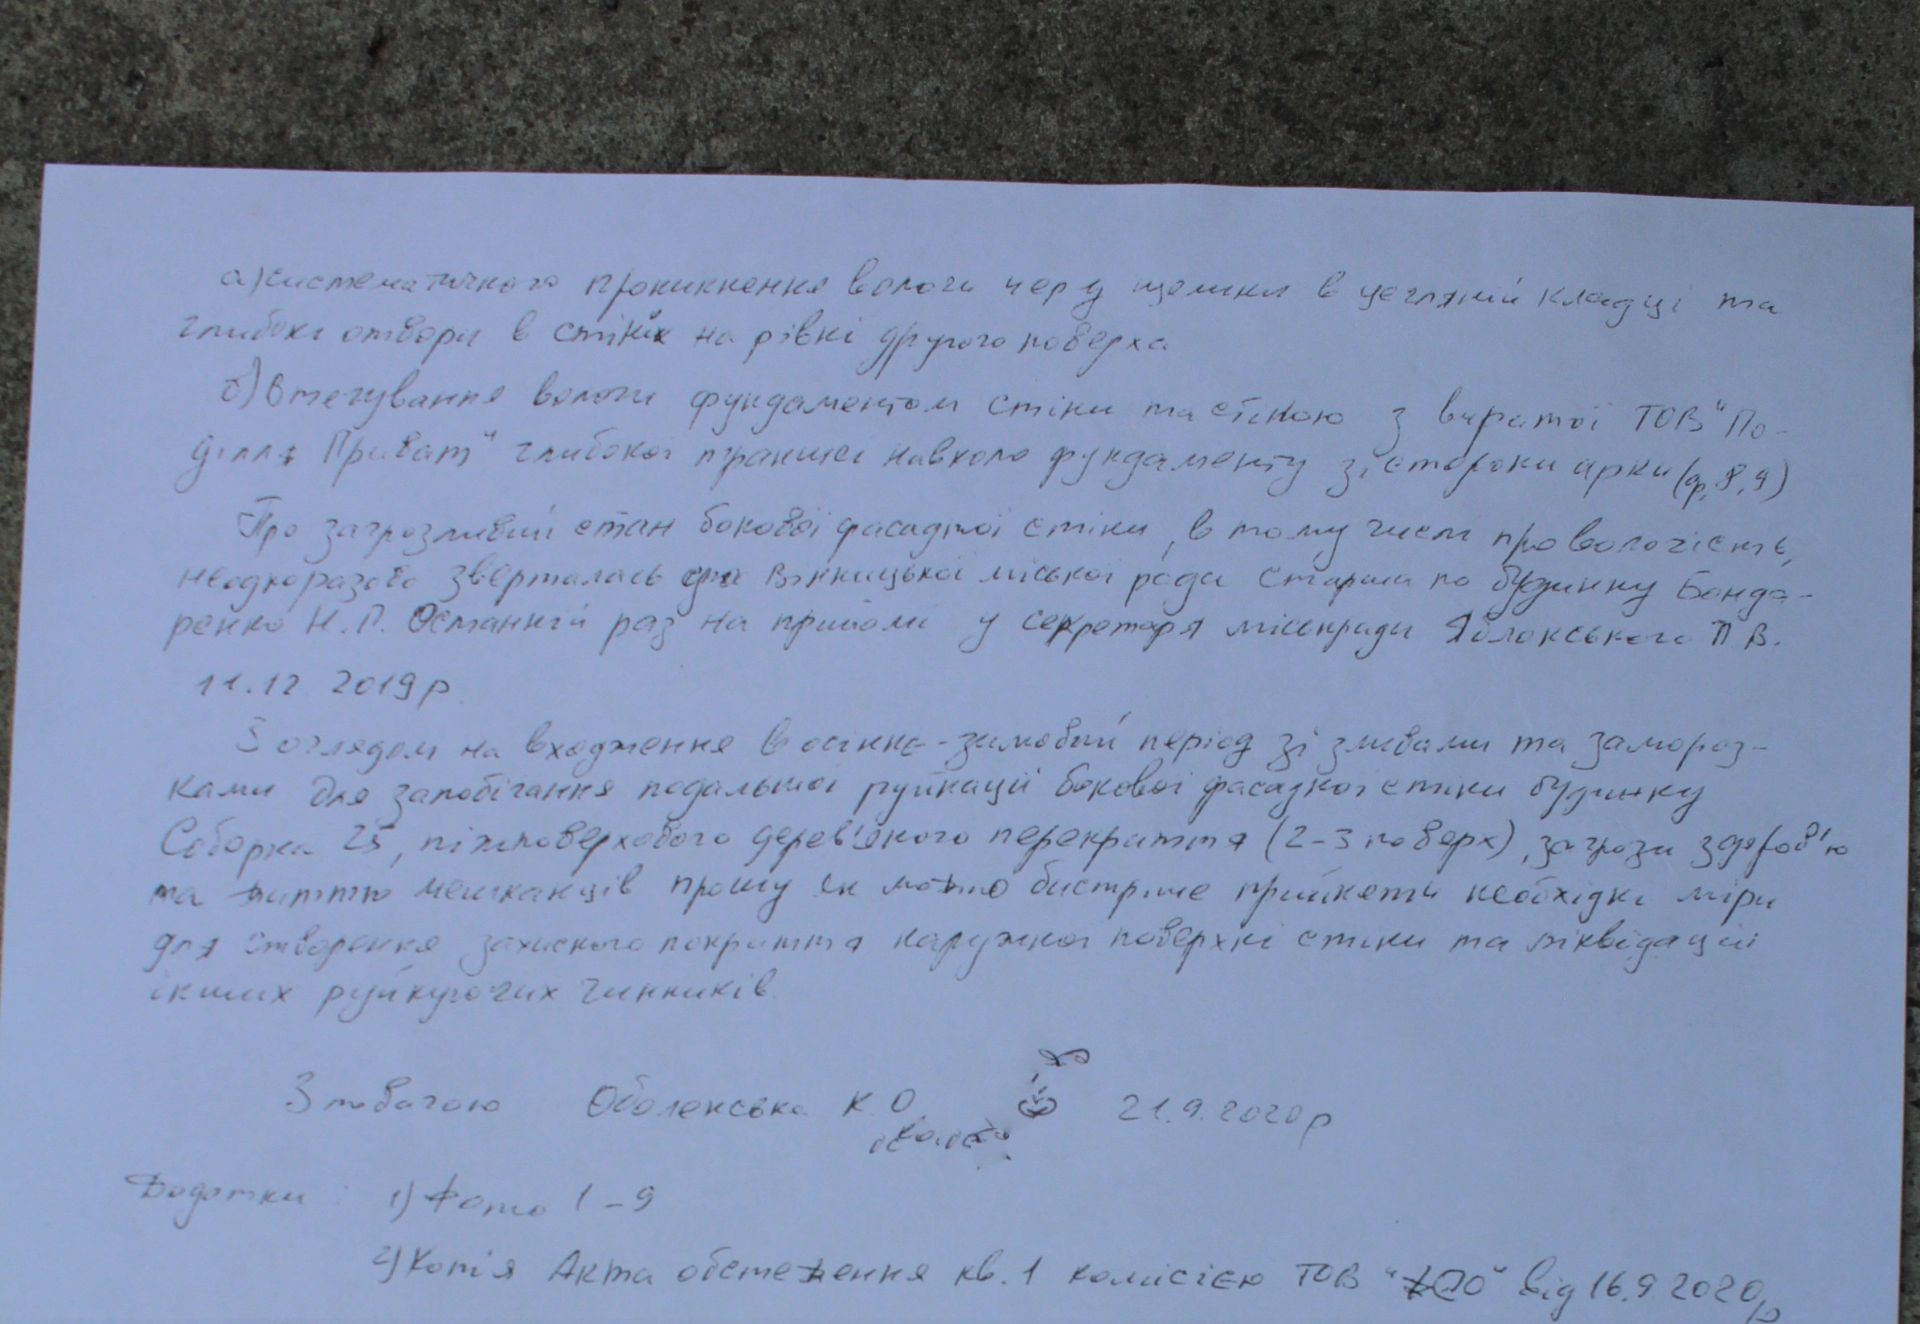 а) систематичного проникнення вологи через щілини в цегляній кладці та
глибокі отвори в стінах на рівні другого поверха
б) Втягування вологи фундаментом стіни та стіною з виритої ТОВ "По-
ділля Приват" глибокої траншеї навколо фундаменту зі сторони арки (ф. 8, 9)
Про загрозливий стан бокової фасадної стіни, в тому числі про вологість,
неодноразово зверталась до Вінницької міської ради старша по будинку Бонда-
ренко Н.П. Останній раз на прийомі у секретаря міськради Яблонського П В.
11.12 2019р.
З оглядом на входження в осінньо-зимовий період зі зливами та замороз-
ками для запобігання подальшої руйнації бокової фасадної стіни будинку
Соборна 25, міжповерхового дерев'яного перекриття (2-3 поверх), загрози здоров'ю
та життю мешканців прошу як можно бистріше прийняти необхідні міри
для створення захисного покриття наружної поверхні стіни та ліквідації
інших руйнуючих чинників.
З повагою Оболенська К.О. 21.9.2020р
Додатки: 1) Фото 1-9
2) Копія Акта обстеження кв. 1 комісією ТОВ від 16.9 2020р